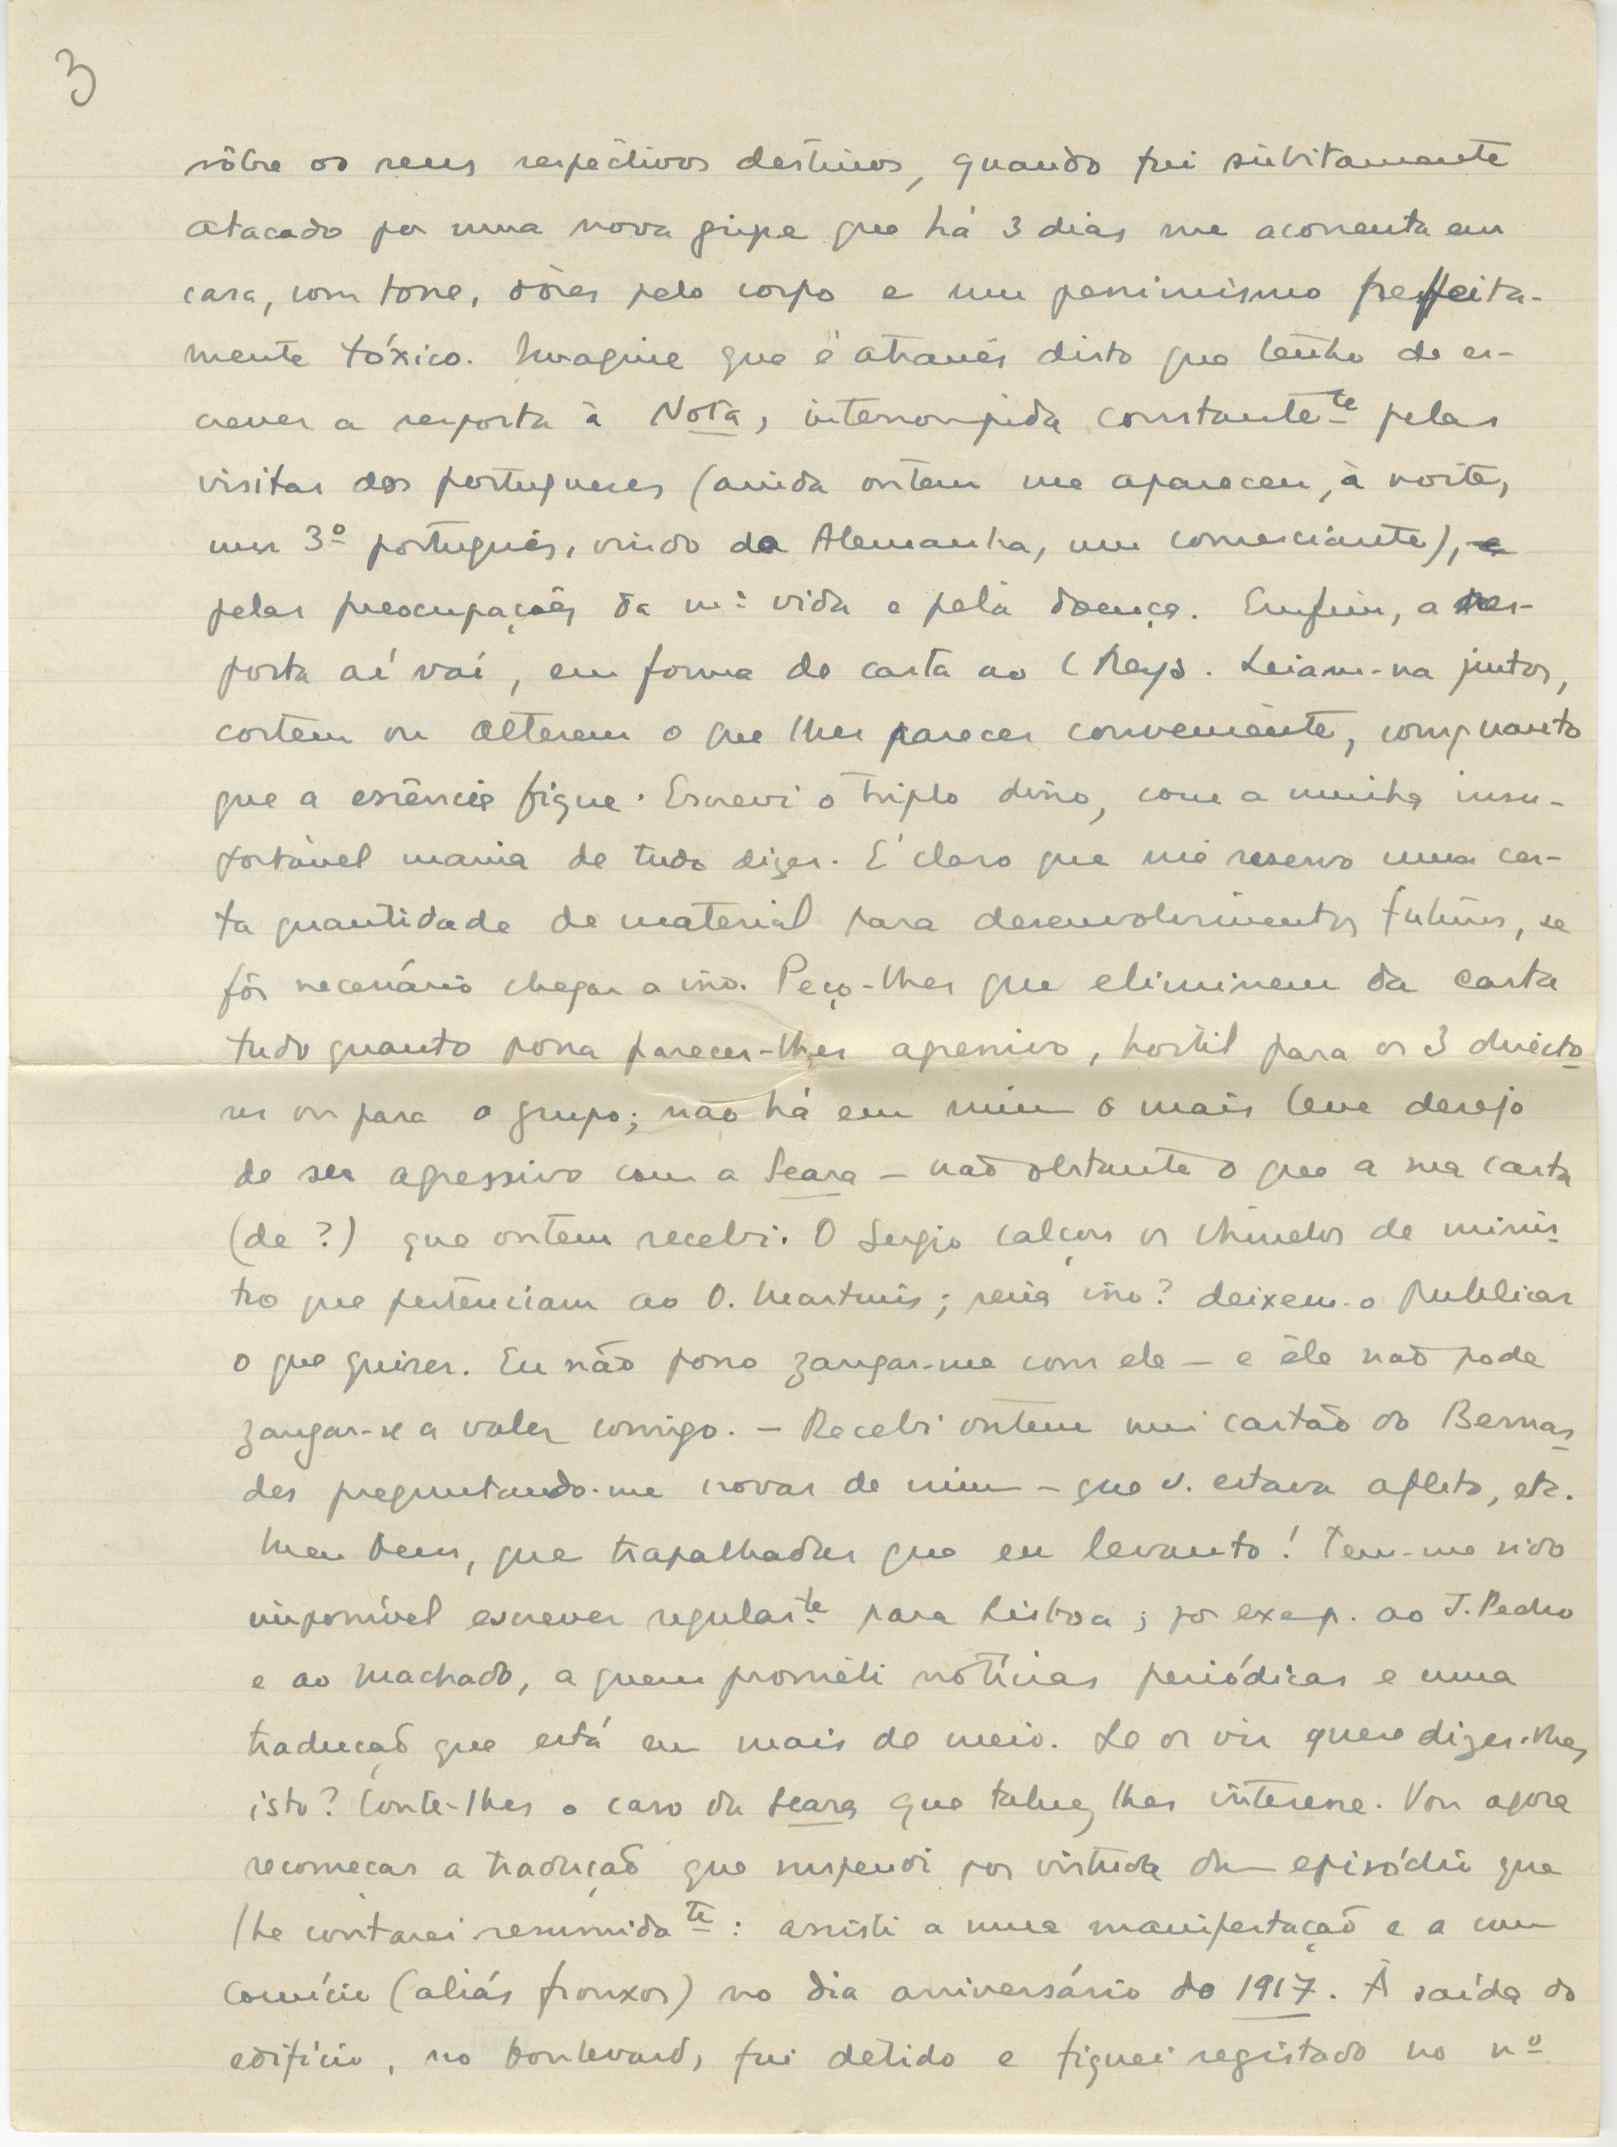 3
sôbre os seus respectivos destinos, quando fui súbitamente
atacado por uma nova gripe que há 3 dias me acorrenta em
casa, com tosse, dôres pelo corpo e um pessimismo perfeita-
mente tóxico. Imagine que é através disto que tenho de es-
crever a resposta à Nota, interrompida constante.te pelas
visitas dos portugueses (ainda ontem me apareceu, à noite,
um 3º português, vindo da Alemanha, um comerciante),
pelas preocupações da m.ª vida e pela doença. Emfim, a res-
posta aí vai, em forma de carta ao C Reys. Leiam-na juntos,
cortem ou alterem o que lhes parecer conveniente, comquanto
que a essência fique. Escrevi o triplo disso, com a minha insu-
portável mania de tudo dizer. É claro que me reservo uma cer-
ta quantidade de material para desenvolvimentos futuros, se
fôr necessário chegar a isso. Peço-lhes que eliminem da carta
tudo quanto possa parecer-lhes agressivo, hostil para os 3 directo-
res ou para o grupo; não há em mim o mais leve desejo
de ser agressivo com a Seara — não obstante o que a sua carta
(de ?) que ontem recebi. O Sergio calçou os chinelos de minis-
tro que pertenciam ao O. Martins; seria isso? deixem-o publicar
o que quizer. Eu não posso zangar-me com ele — e êle não pode
zangar-se a valer comigo. — Recebi ontem um cartão do Bernar-
des preguntando-me novas de mim — que v. estava aflito, etc.
Meu Deus, que trapalhadas que eu levanto! Tem-me sido
impossível escrever regular.te para Lisboa; por exep. ao J. Pedro
e ao Machado, a quem prometi notícias periódicas e uma
tradução que está em mais de meio. Se os vir quere dizer-lhes
isto? Conte-lhes o caso da Seara que talvez lhes interesse. Vou agora
recomeçar a tradução que suspendi por virtude dum episódio que
lhe contarei resumida.te: assisti a uma manifestação e a um
comício (aliás frouxos) no dia aniversário de 1917. À saída do
edifício, no boulevard, fui detido e fiquei registado no nº